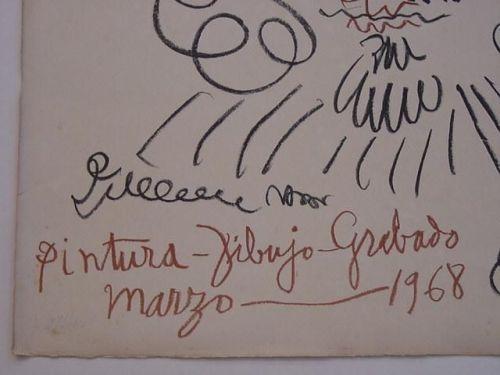 Pintura - Dibujo - Grabado
Marzo — 1968